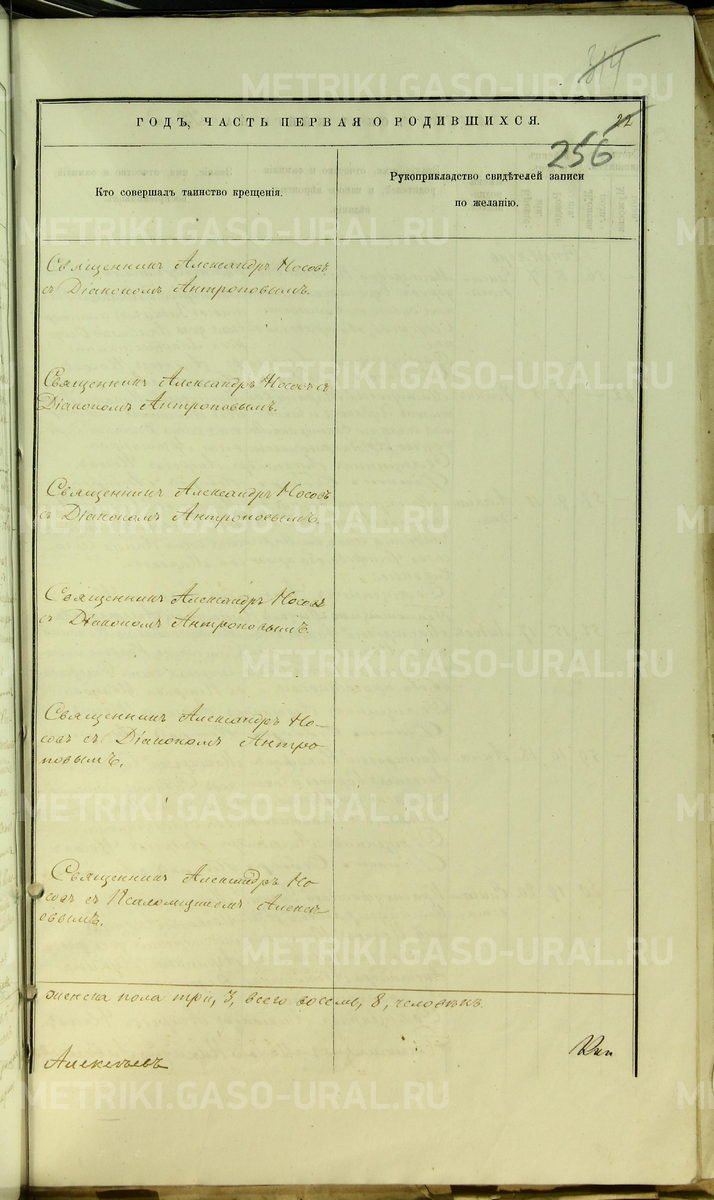 314
ГОДЪ, ЧАСТЬ ПЕРВАЯ О РОДИВШИХСЯ.
22
256
Кто совершалъ таинство крещенія.
Рукоприкладство свидѣтелей записи
по желанію.
Священникъ Александръ Носовъ
съ Діакономъ Антроповымъ.
Священникъ Александръ Носовъ съ
Діакономъ Антроповымъ.
Священникъ Александръ Носовъ
съ Діакономъ Антроповымъ.
Священникъ Александръ Носовъ
съ Діакономъ Антроповымъ.
Священникъ Александръ Но-
совъ съ Діакономъ Антро-
повымъ.
Священникъ Александръ Но
совъ съ Псаломщикомъ Алексѣ
евымъ.
женска пола три, 3, всего восемь, 8, человѣкъ.
Алексѣевъ
METRIKI.GASO-URAL.RU